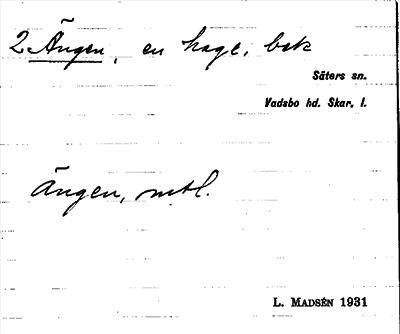 2 Ängen, en hage, bek
Säters sn.
Vadsbo hd. Skar. l.
ängen, mtl.
L. MADSÉN 1931